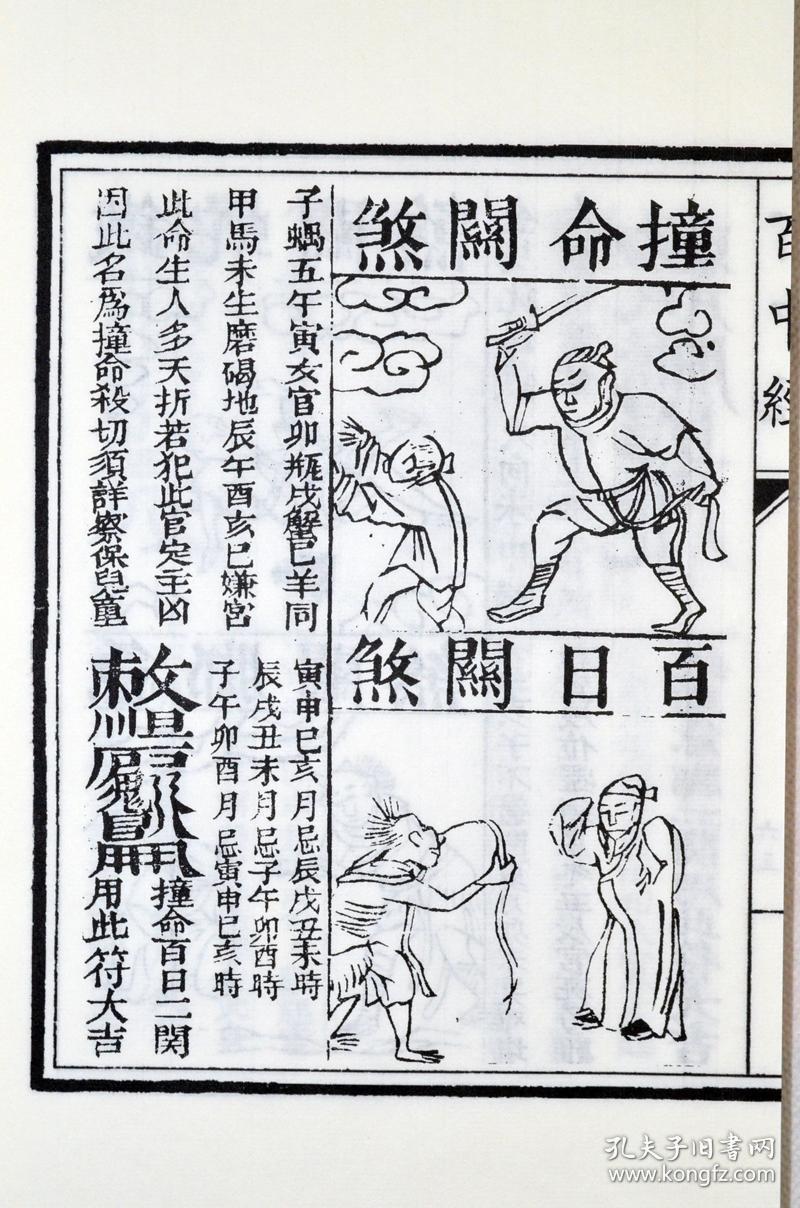 百中經
撞命關煞
子蝎五午寅亥官卯瓶戌蟹巳羊同
甲馬未生磨碣地辰午酉亥巳嫌宮
此命生人多夭折若犯此官定主凶
因此名為撞命殺切須詳察保兒童
百日關煞
寅申巳亥月忌辰戌丑未時
辰戌丑未月忌子午卯酉時
子午卯酉月忌寅申巳亥時
撞命百日二関
用此符大吉
孔夫子旧书网
www.kongfz.com